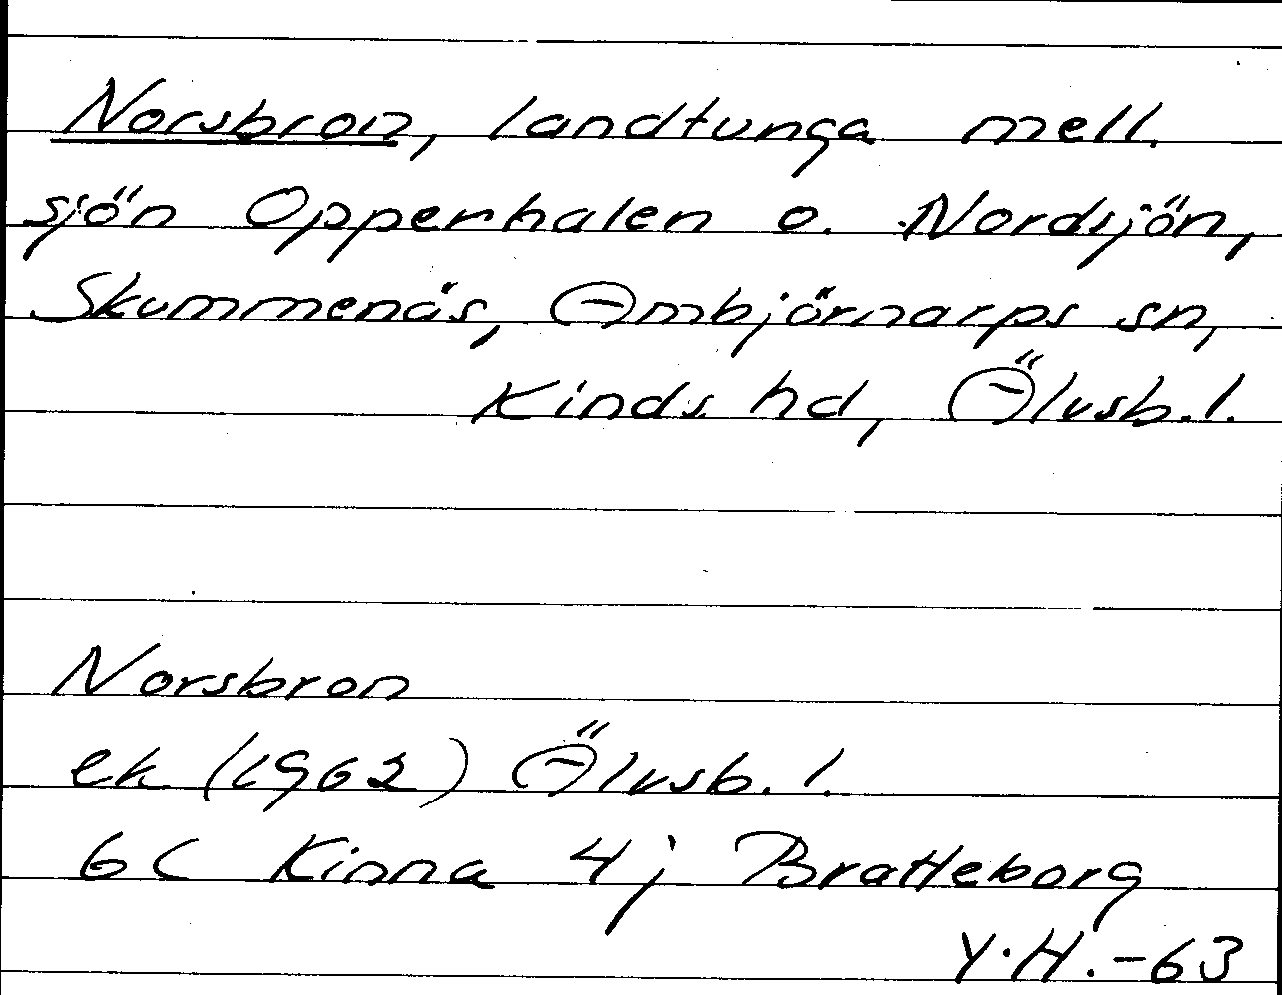 Norsbron, landtunga mell.
sjön Opperhalen o. Nordsjön,
Skummenäs, Ambjörnarps sn,
Kinds hd, Älvsb. l.
Norsbron
ek (1962) Älvsb. l.
6C Kinna 4j Bratteborg
Y.H.-63